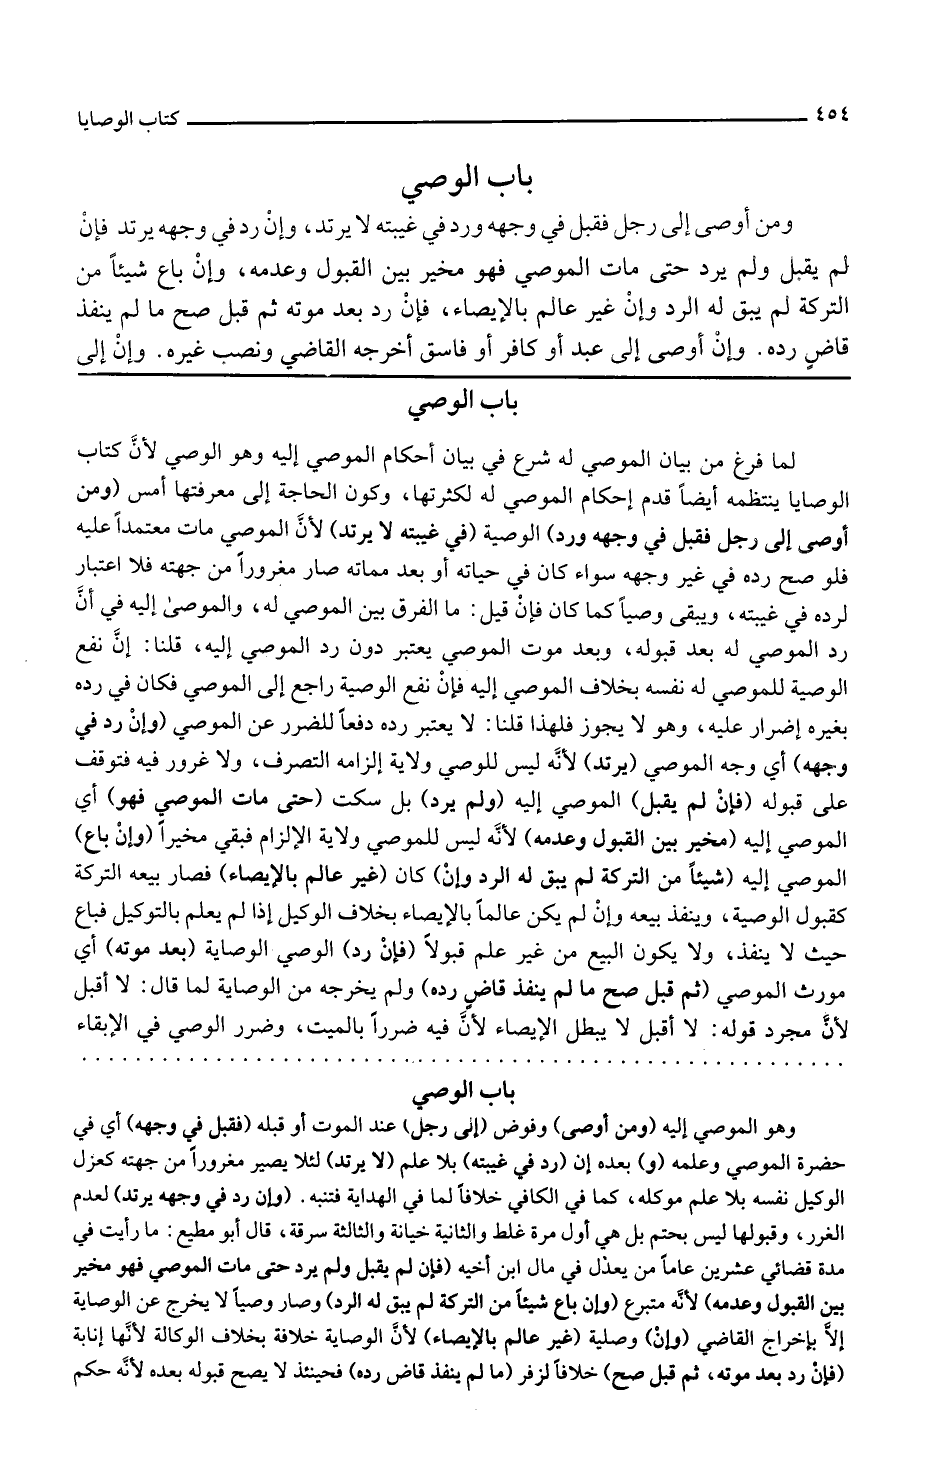 ٤٥٤ كتاب الوصايا
باب الوصي
ومن أوصى إلى رجل فقبل في وجهه ورد في غيبته لا يرتد، وإنْ رد في وجهه يرتد فإنْ
لم يقبل ولم يرد حتى مات الموصي فهو مخير بين القبول وعدمه، وإنْ باع شيئاً من
التركة لم يبق له الرد وإنْ غير عالم بالإيصاء، فإنْ رد بعد موته ثم قبل صح ما لم ينفذ
قاضٍ رده. وإنْ أوصى إلى عبد أو كافر أو فاسق أخرجه القاضي ونصب غيره. وإنْ إلى
باب الوصي
لما فرغ من بيان الموصي له شرع في بيان أحكام الموصي إليه وهو الوصي لأنَّ كتاب
الوصايا ينتظمه أيضاً قدم إحكام الموصي له لكثرتها، وكون الحاجة إلى معرفتها أمس (ومن
أوصى إلى رجل فقبل في وجهه ورد) الوصية (في غيبته لا يرتد) لأنَّ الموصي مات معتمداً عليه
فلو صح رده في غير وجهه سواء كان في حياته أو بعد مماته صار مغروراً من جهته فلا اعتبار
لرده في غيبته، ويبقى وصياً كما كان فإنْ قيل: ما الفرق بين الموصي له، والموصىٰ إليه في أنَّ
رد الموصي له بعد قبوله، وبعد موت الموصي يعتبر دون رد الموصي إليه، قلنا: إنَّ نفع
الوصية للموصي له نفسه بخلاف الموصي إليه فإنْ نفع الوصية راجع إلى الموصي فكان في رده
بغيره إضرار عليه، وهو لا يجوز فلهذا قلنا: لا يعتبر رده دفعاً للضرر عن الموصي (وإنْ رد في
وجهه) أي وجه الموصي (يرتد) لأنَّه ليس للوصي ولاية إلزامه التصرف، ولا غرور فيه فتوقف
على قبوله (فإنْ لم يقبل) الموصي إليه (ولم يرد) بل سكت (حتى مات الموصي فهو) أي
الموصي إليه (مخير بين القبول وعدمه) لأنَّه ليس للموصي ولاية الإلزام فبقي مخيراً (وإنْ باع)
الموصي إليه (شيئاً من التركة لم يبق له الرد وإنْ) كان (غير عالم بالإيصاء) فصار بيعه التركة
كقبول الوصية، وينفذ بيعه وإنْ لم يكن عالماً بالإيصاء بخلاف الوكيل إذا لم يعلم بالتوكيل فباع
حيث لا ينفذ، ولا يكون البيع من غير علم قبولاً (فإنْ رد) الوصي الوصاية (بعد موته) أي
مورث الموصي (ثم قبل صح ما لم ينفذ قاضٍ رده) ولم يخرجه من الوصاية لما قال: لا أقبل
لأنَّ مجرد قوله: لا أقبل لا يبطل الإيصاء لأنَّ فيه ضرراً بالميت، وضرر الوصي في الإبقاء
باب الوصي
وهو الموصي إليه (ومن أوصى) وفوض (إلى رجل) عند الموت أو قبله (فقبل في وجهه) أي في
حضرة الموصي وعلمه (و) بعده إن (رد في غيبته) بلا علم (لا يرتد) لئلا يصير مغروراً من جهته كعزل
الوكيل نفسه بلا علم موكله، كما في الكافي خلافاً لما في الهداية فتنبه. (وإن رد في وجهه يرتد) لعدم
الغرر، وقبولها ليس بحتم بل هي أول مرة غلط والثانية خيانة والثالثة سرقة، قال أبو مطيع: ما رأيت في
مدة قضائي عشرين عاماً من يعدّل في مال ابن أخيه (فإن لم يقبل ولم يرد حتى مات الموصي فهو مخير
بين القبول وعدمه) لأنَّه متبرع (وإن باع شيئاً من التركة لم يبق له الرد) وصار وصياً لا يخرج عن الوصاية
إلاَّ بإخراج القاضي (وإنْ) وصلية (غير عالم بالإيصاء) لأنَّ الوصاية خلافة بخلاف الوكالة لأنَّها إنابة
(فإنْ رد بعد موته، ثم قبل صح) خلافاً لزفر (ما لم ينفذ قاض رده) فحينئذ لا يصح قبوله بعده لأنَّه حكم